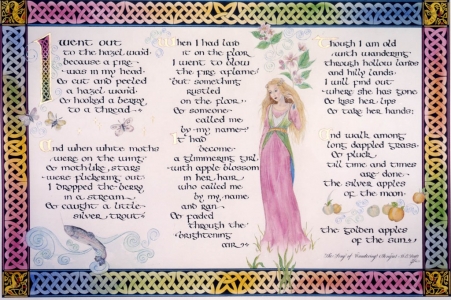 I went out
to the hazel wood
because a fire
was in my head
& cut and peeled
a hazel wand
& hooked a berry
to a thread
And when white moths
were on the wing
& mothlike stars
were flickering out
I dropped the berry
in a stream
& caught a little
silver trout
When I had laid
it on the floor
I went to blow
the fire aflame
But something
rustled
on the floor
& someone
called me
by my name
It had
become
a glimmering girl
with apple blossom
in her hair
who called me
by my name
and ran
& faded
through the
brightening
air
Though I am old
with wandering
through hollow lands
and hilly lands
I will find out
where she has gone
& kiss her lips
& take her hands
And walk among
long dappled grass
& pluck
till time and times
are done
the silver apples
of the moon
the golden apples
of the sun
The Song of Wandering Aengus